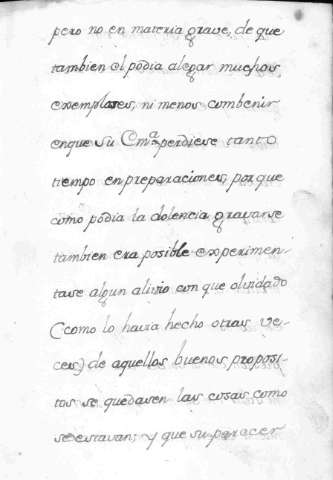 pero no en materia grave, de que
tambien el pòdia alegar muchos
exemplares, ni menos combenir
enque su Cm.ª perdiese tanto
tiempo en preparaciones, porque
como pòdia la dolencia gravarse
tambien era posible experimen-
tase algun alivio con que olvidado
(como lo havia hecho otras ve-
ces) de aquellos buenos proposi-
tos se quedasen las cosas como
se estavan; y que su parecer